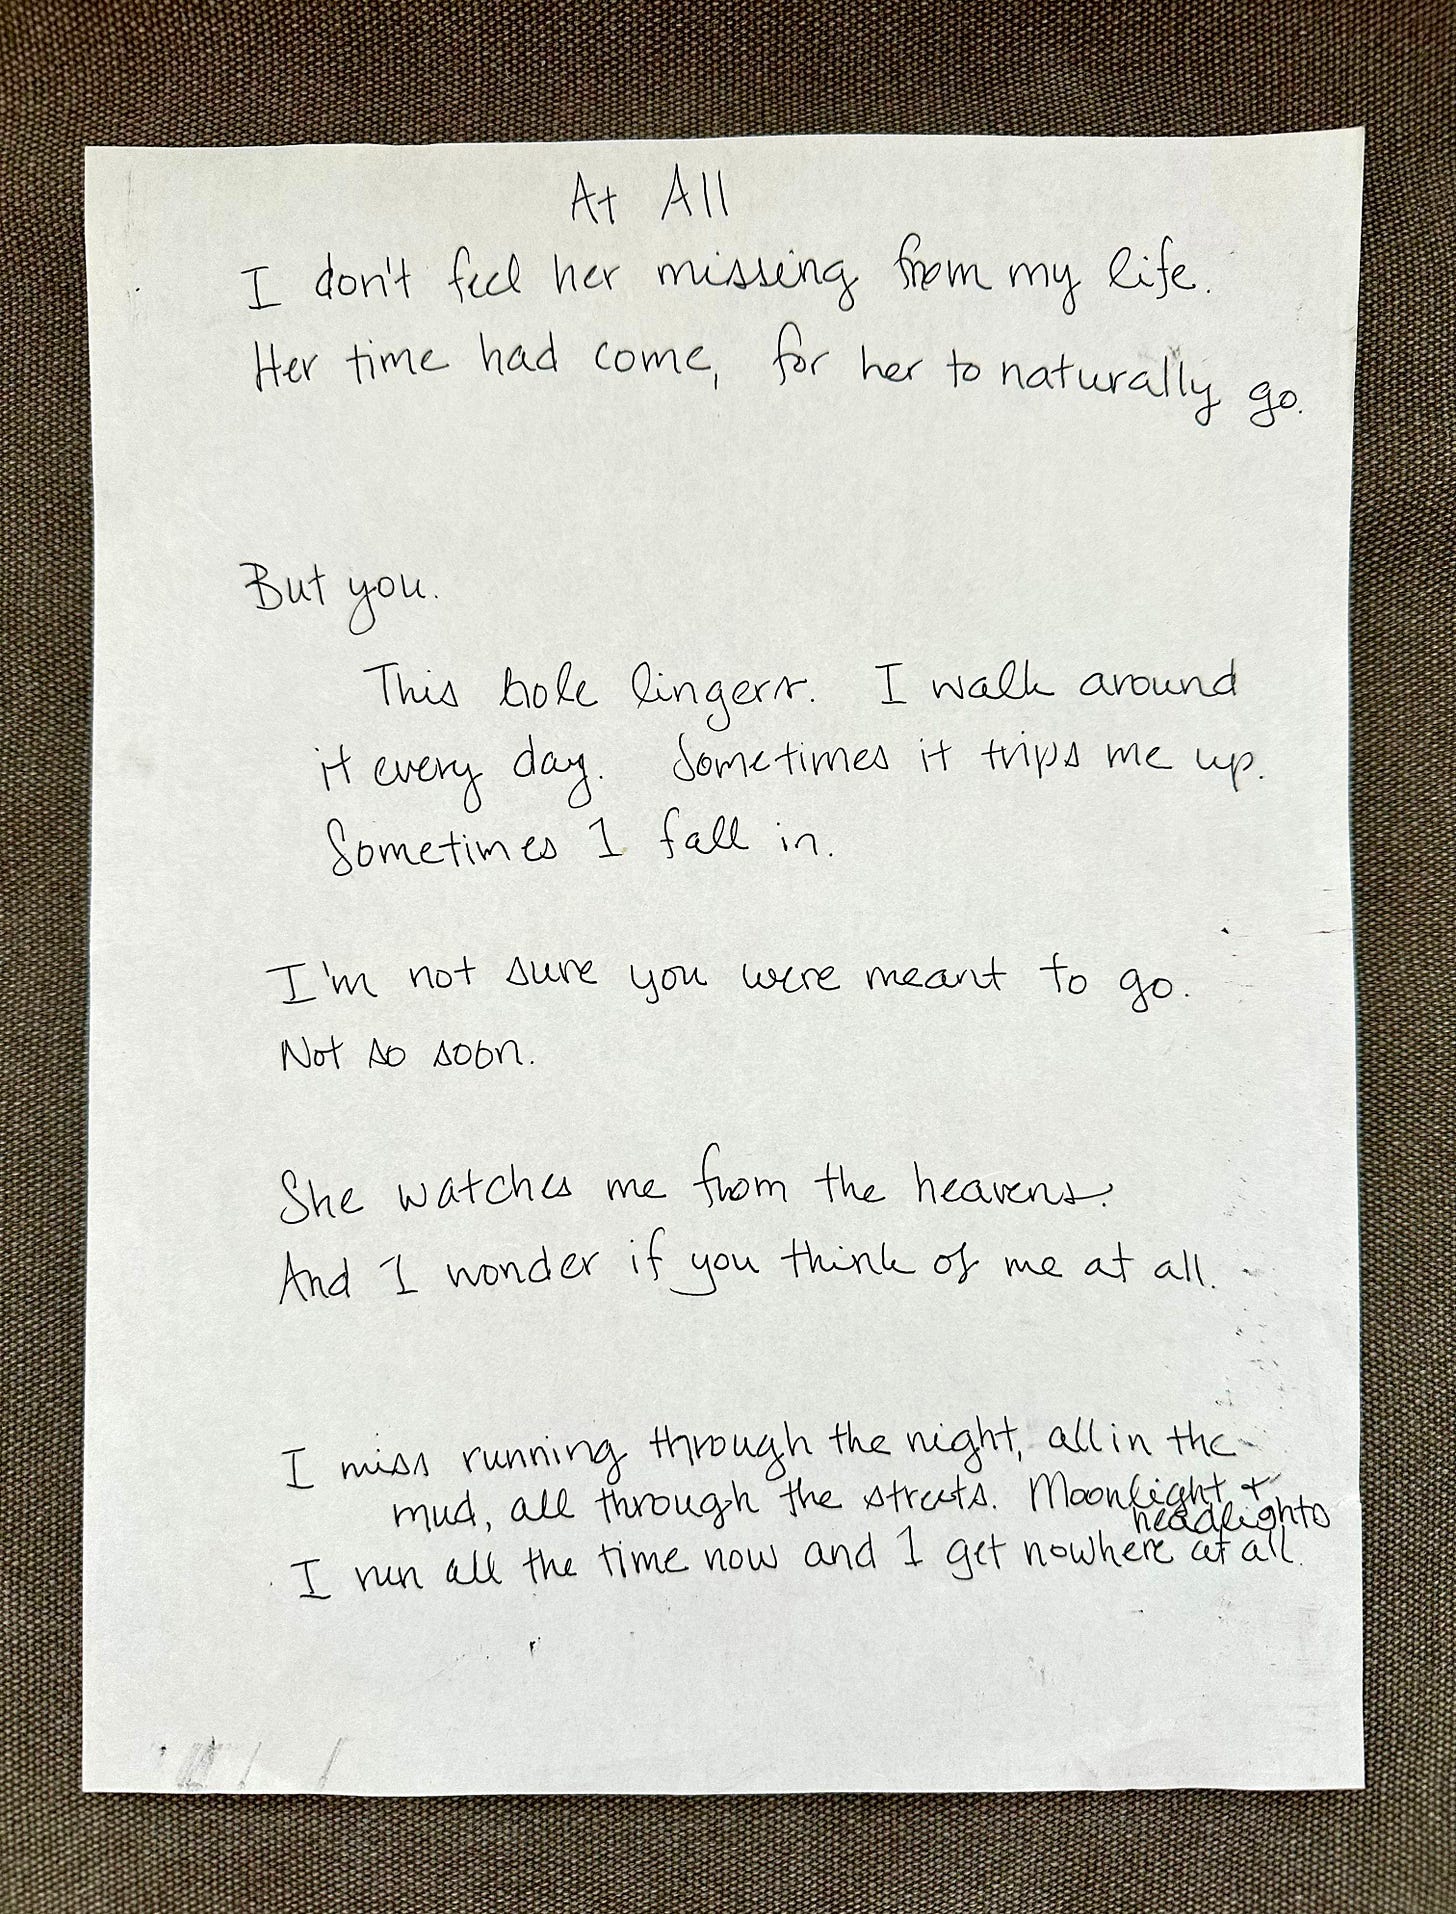 At All
I don't feel her missing from my life.
Her time had come, for her to naturally go.
But you.
This hole lingers. I walk around
it every day. Sometimes it trips me up.
Sometimes I fall in.
I'm not sure you were meant to go.
Not so soon.
She watches me from the heavens.
And I wonder if you think of me at all.
I miss running through the night, all in the
mud, all through the streets. Moonlight +
headlights
I run all the time now and I get nowhere at all.